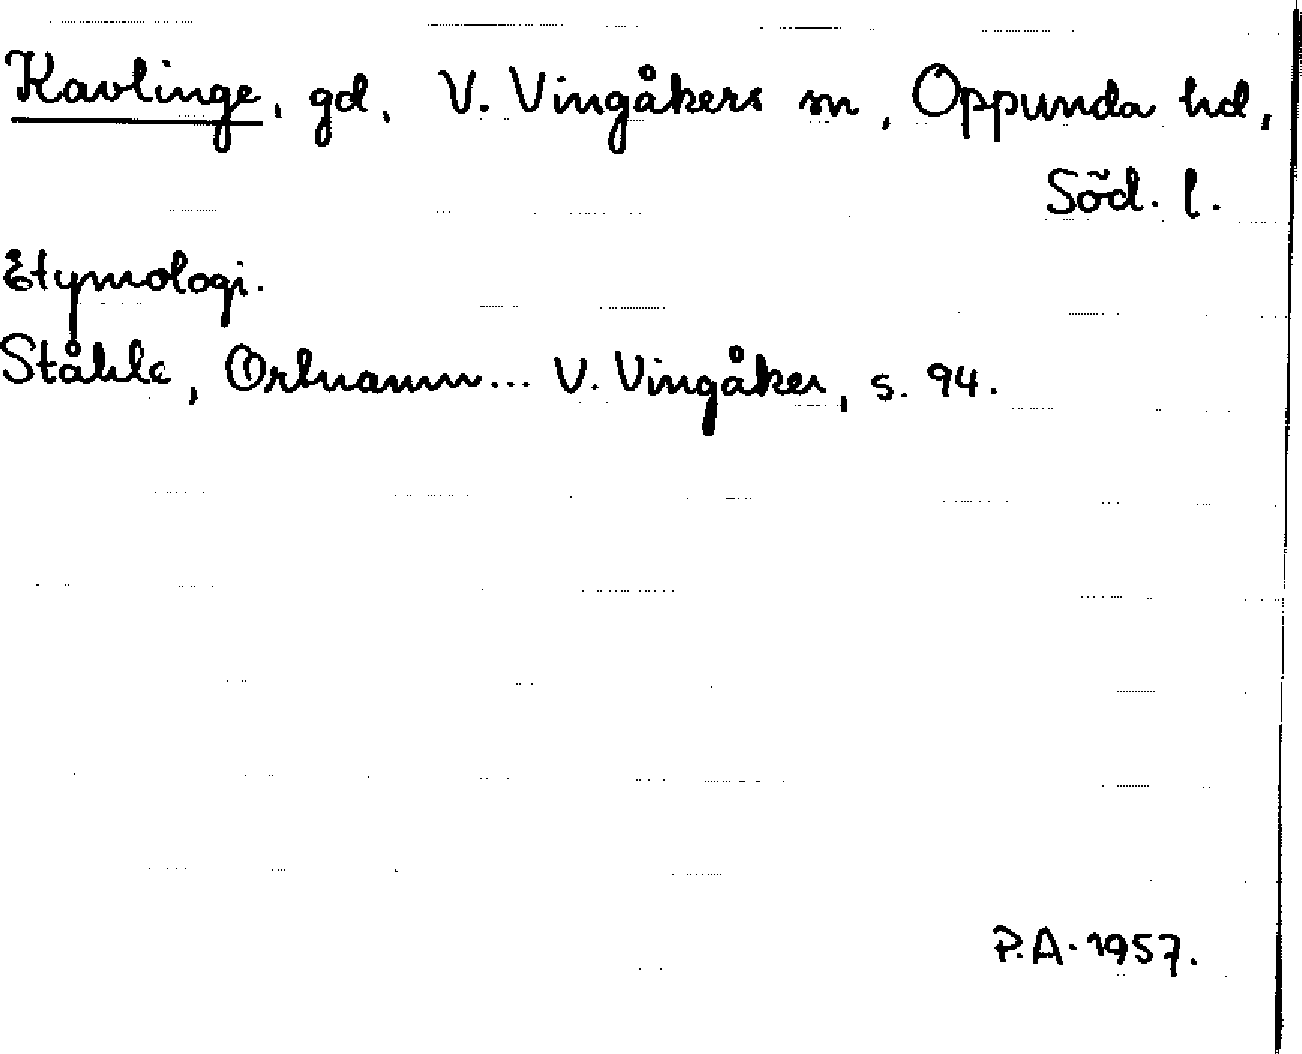 Kavlinge, gd, V. Vingåkers sn, Oppunda hd,
Söd. l.
Etymologi.
Ståhle, Ortnamn... V. Vingåker, s. 94.
P.A. 1957.